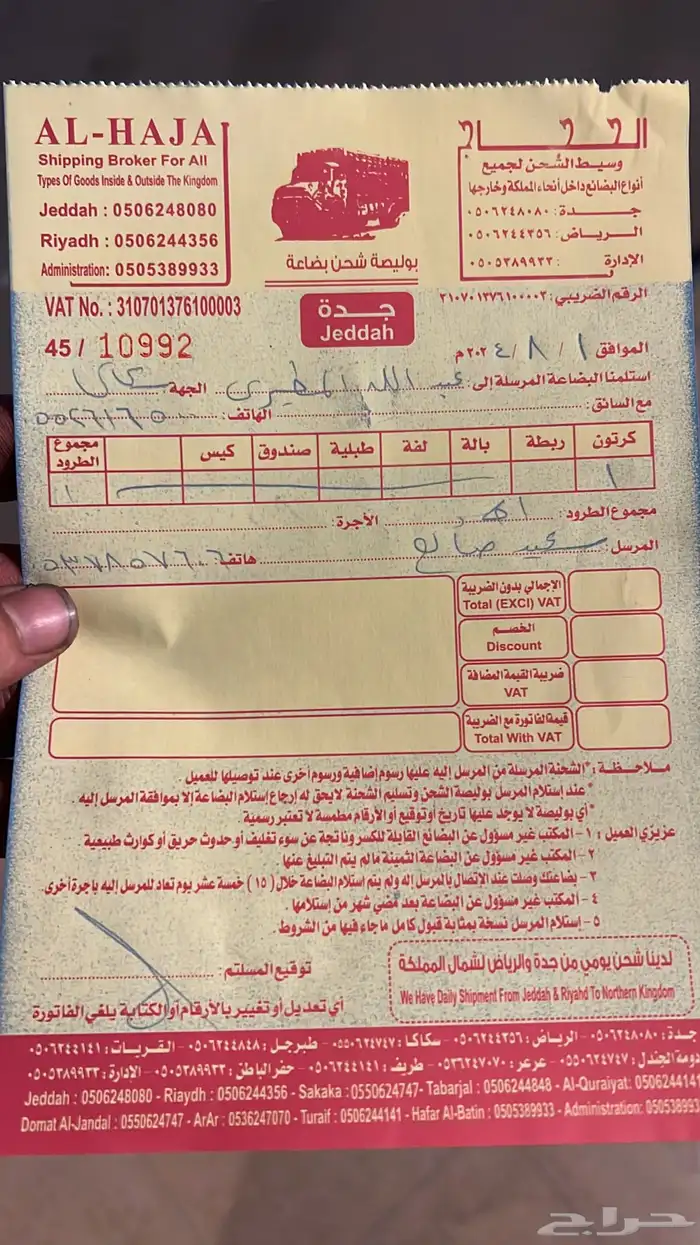 AL-HAJA
Shipping Broker For All
Types Of Goods Inside & Outside The Kingdom
Jeddah : 0506248080
Riyadh : 0506244356
Administration: 0505389933
الحاج
وسيط الشحن لجميع
أنواع البضائع داخل أنحاء المملكة وخارجها
جدة: ٠٥٠٦٢٤٨٠٨٠
الرياض: ٠٥٠٦٢٤٤٣٥٦
الإدارة: ٠٥٠٥٣٨٩٩٣٣
بوليصة شحن بضاعة
VAT No. : 310701376100003
جدة
Jeddah
الرقم الضريبي: ٣١٠٧٠١٣٧٦١٠٠٠٠٣
45 / 10992
الموافق ١ / ٨ / ٢٠٢٤ م
استلمنا البضاعة المرسلة إلى: عبد الله المطيري الجهة
مع السائق: الهاتف:
كرتون ربطة بالة لفة طبلية صندوق كيس مجموع الطرود
١ ١
مجموع الطرود: الأجرة:
المرسل: سعيد صالح هاتف: ٠٥٣٧٨٥٧٦٠٦
الإجمالي بدون الضريبة
Total (EXCl) VAT
الخصم
Discount
ضريبة القيمة المضافة
VAT
قيمة الفاتورة مع الضريبة
Total With VAT
ملاحظة: *الشحنة المرسلة من المرسل إليه عليها رسوم إضافية ورسوم أخرى عند توصيلها للعميل.
* عند إستلام المرسل بوليصة الشحن وتسليم الشحنة لايحق له إرجاع إستلام البضاعة إلا بموافقة المرسل إليه.
*أي بوليصة لا يوجد عليها تاريخ أو توقيع أو الأرقام مطمسة لا تعتبر رسمية.
عزيزي العميل: ١- المكتب غير مسؤول عن البضائع القابلة للكسر وناتجة عن سوء تغليف أو حدوث حريق أو كوارث طبيعية.
٢- المكتب غير مسؤول عن البضاعة الثمينة مالم يتم التبليغ عنها.
٣- بضاعتك وصلت عند الإتصال بالمرسل إله ولم يتم إستلام البضاعة خلال (١٥) خمسة عشر يوم تعاد للمرسل إليه بأجرة أخرى.
٤- المكتب غير مسؤول عن البضاعة بعد مضي شهر من إستلامها.
٥- إستلام المرسل نسخة بمثابة قبول كامل ما جاء فيها من الشروط.
توقيع المستلم:
لدينا شحن يومي من جدة والرياض لشمال المملكة
We Have Daily Shipment From Jeddah & Riyahd To Northern Kingdom
أي تعديل أو تغيير بالأرقام أو الكتابة يلغي الفاتورة
جدة: ٠٥٠٦٢٤٨٠٨٠ - الرياض: ٠٥٠٦٢٤٤٣٥٦ - سكاكا: ٠٥٥٠٦٢٤٧٤٧ - طبرجل: ٠٥٠٦٢٤٤٨٤٨ - القريات: ٠٥٠٦٢٤٤١٤١
دومة الجندل: ٠٥٥٠٦٢٤٧٤٧ - عرعر: ٠٥٣٦٢٤٧٠٧٠ - طريف: ٠٥٠٦٢٤٤١٤١ - حفر الباطن: ٠٥٠٥٣٨٩٩٣٣ - الإدارة: ٠٥٠٥٣٨٩٩٣٣
Jeddah : 0506248080 - Riaydh : 0506244356 - Sakaka :0550624747- Tabarjal : 0506244848 - Al-Quraiyat: 0506244181
Domat Al-Jandal : 0550624747 - ArAr : 0536247070 - Turaif : 0506244141 - Hafar Al-Batin : 0505389933 - Administration: 050538993
حراج